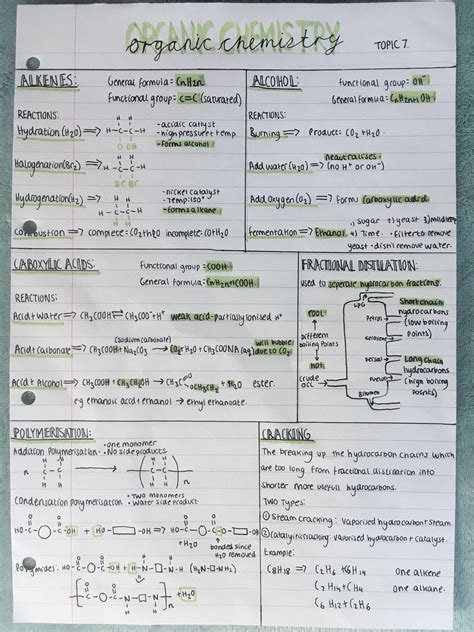 ORGANIC CHEMISTRY
organic chemistry
TOPIC 7.
ALKENES:
General formula = CnH2n
Functional group: C=C (saturated)
REACTIONS:
Hydration (H2O) ⟹
- acidic catalyst
- high pressure + temp
- forms alcohol
Halogenation (Br2) ⟹
Hydrogenation (H2) ⟹
- nickel catalyst
- Temp: 150°
- forms alkane
Combustion ⟹ complete = CO2 + H2O incomplete = CO + H2O
ALCOHOL:
Functional group: OH-
General formula = CnH2n+1 OH
REACTIONS:
Burning ⟹ Product: CO2 + H2O
Add water (H2O) ⟹ neutralises (no H+ or OH-)
Add oxygen (O2) ⟹ forms carboxylic acid
fermentation ⟹ Ethanol
1) sugar 2) yeast 3)
4) Time - filter to remove
yeast - distil remove water.
CABOXYLIC ACIDS:
Functional group: COOH
General formula:
REACTIONS:
Acid + Water ⟹ CH3COOH ⇌ CH3COO- + H+ weak acid - partially ionised H+
Acid + carbonate (sodium carbonate) ⟹ CH3COOH + Na2CO3 → CO2 + H2O + CH3COONa (aq) will bubble due to CO2
Acid + Alcohol ⟹ CH3COOH + CH3CH2OH → CH3C=O OCH2CH3 + H2O ester.
eg ethanoic acid + ethanol → ethyl ethanoate.
FRACTIONAL DISTILATION:
used to seperate hydrocarbon fractions.
cool
different
boiling points
hot
crude
oil
LPG
Petrol
Kerosene
Diesel
Fuel oil
Bitumen
Short chain
hydrocarbons
(low boiling
points)
Long chain
hydrocarbons
(high boiling
points)
POLYMERISATION:
Addition Polymerisation
- one monomer
- No side products
Condensation Polymerisation
- Two monomers
- Water side product
+ H2O
bonded since
H2O removed
(H2N-□-NH2)
+ H2O
CRACKING
The breaking up the hydrocarbon chains which
are too long from fractional distilation into
shorter more usefull hydrocarbons.
TWO Types:
① Steam cracking: Vaporised hydrocarbon + steam.
② Catalytic cracking: vaporised hydrocarbon + catalyst.
Example:
C8H18 ⟹ C2H6 + C6H14 one alkane
C7H14 + CH4 one alkane
C6H12 + C2H6